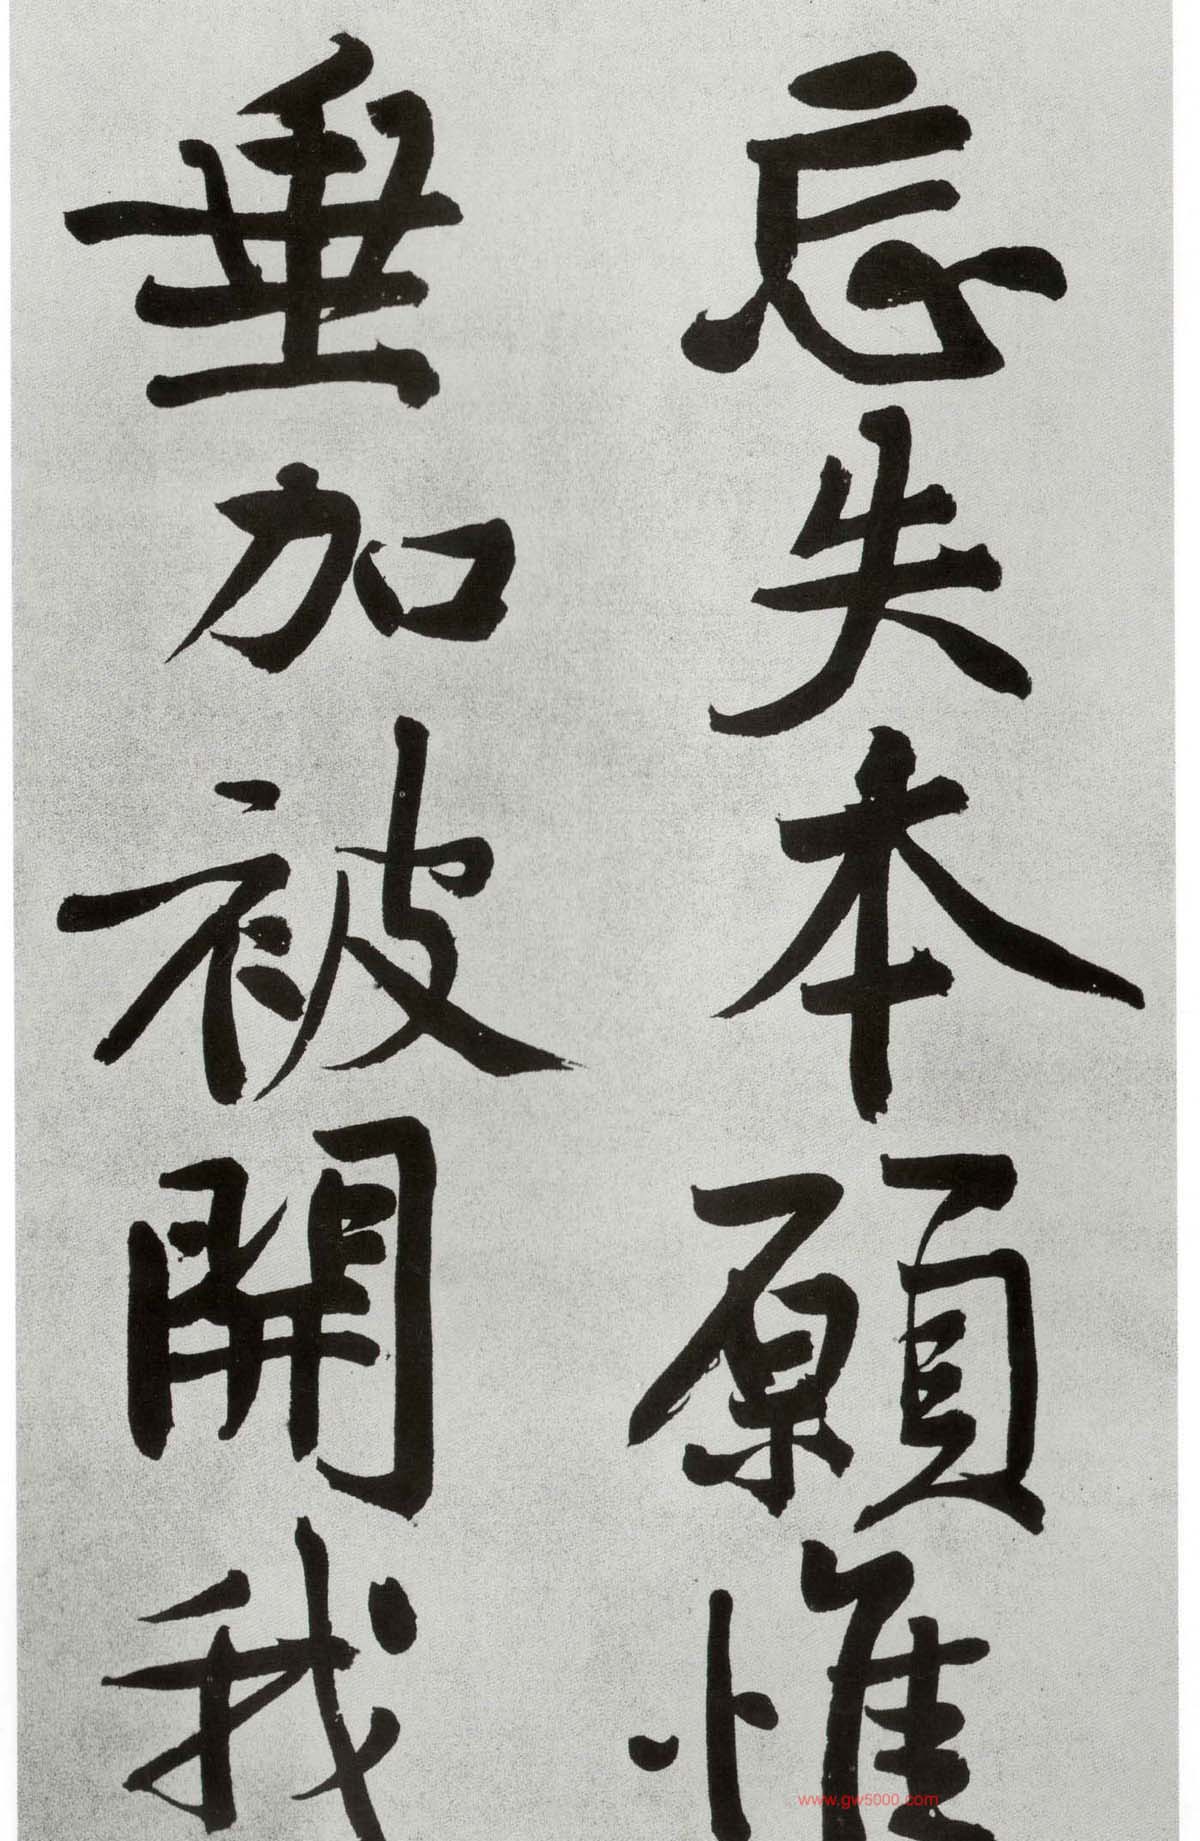 忘失本願惟
垂加被開我
www.gw5000.com